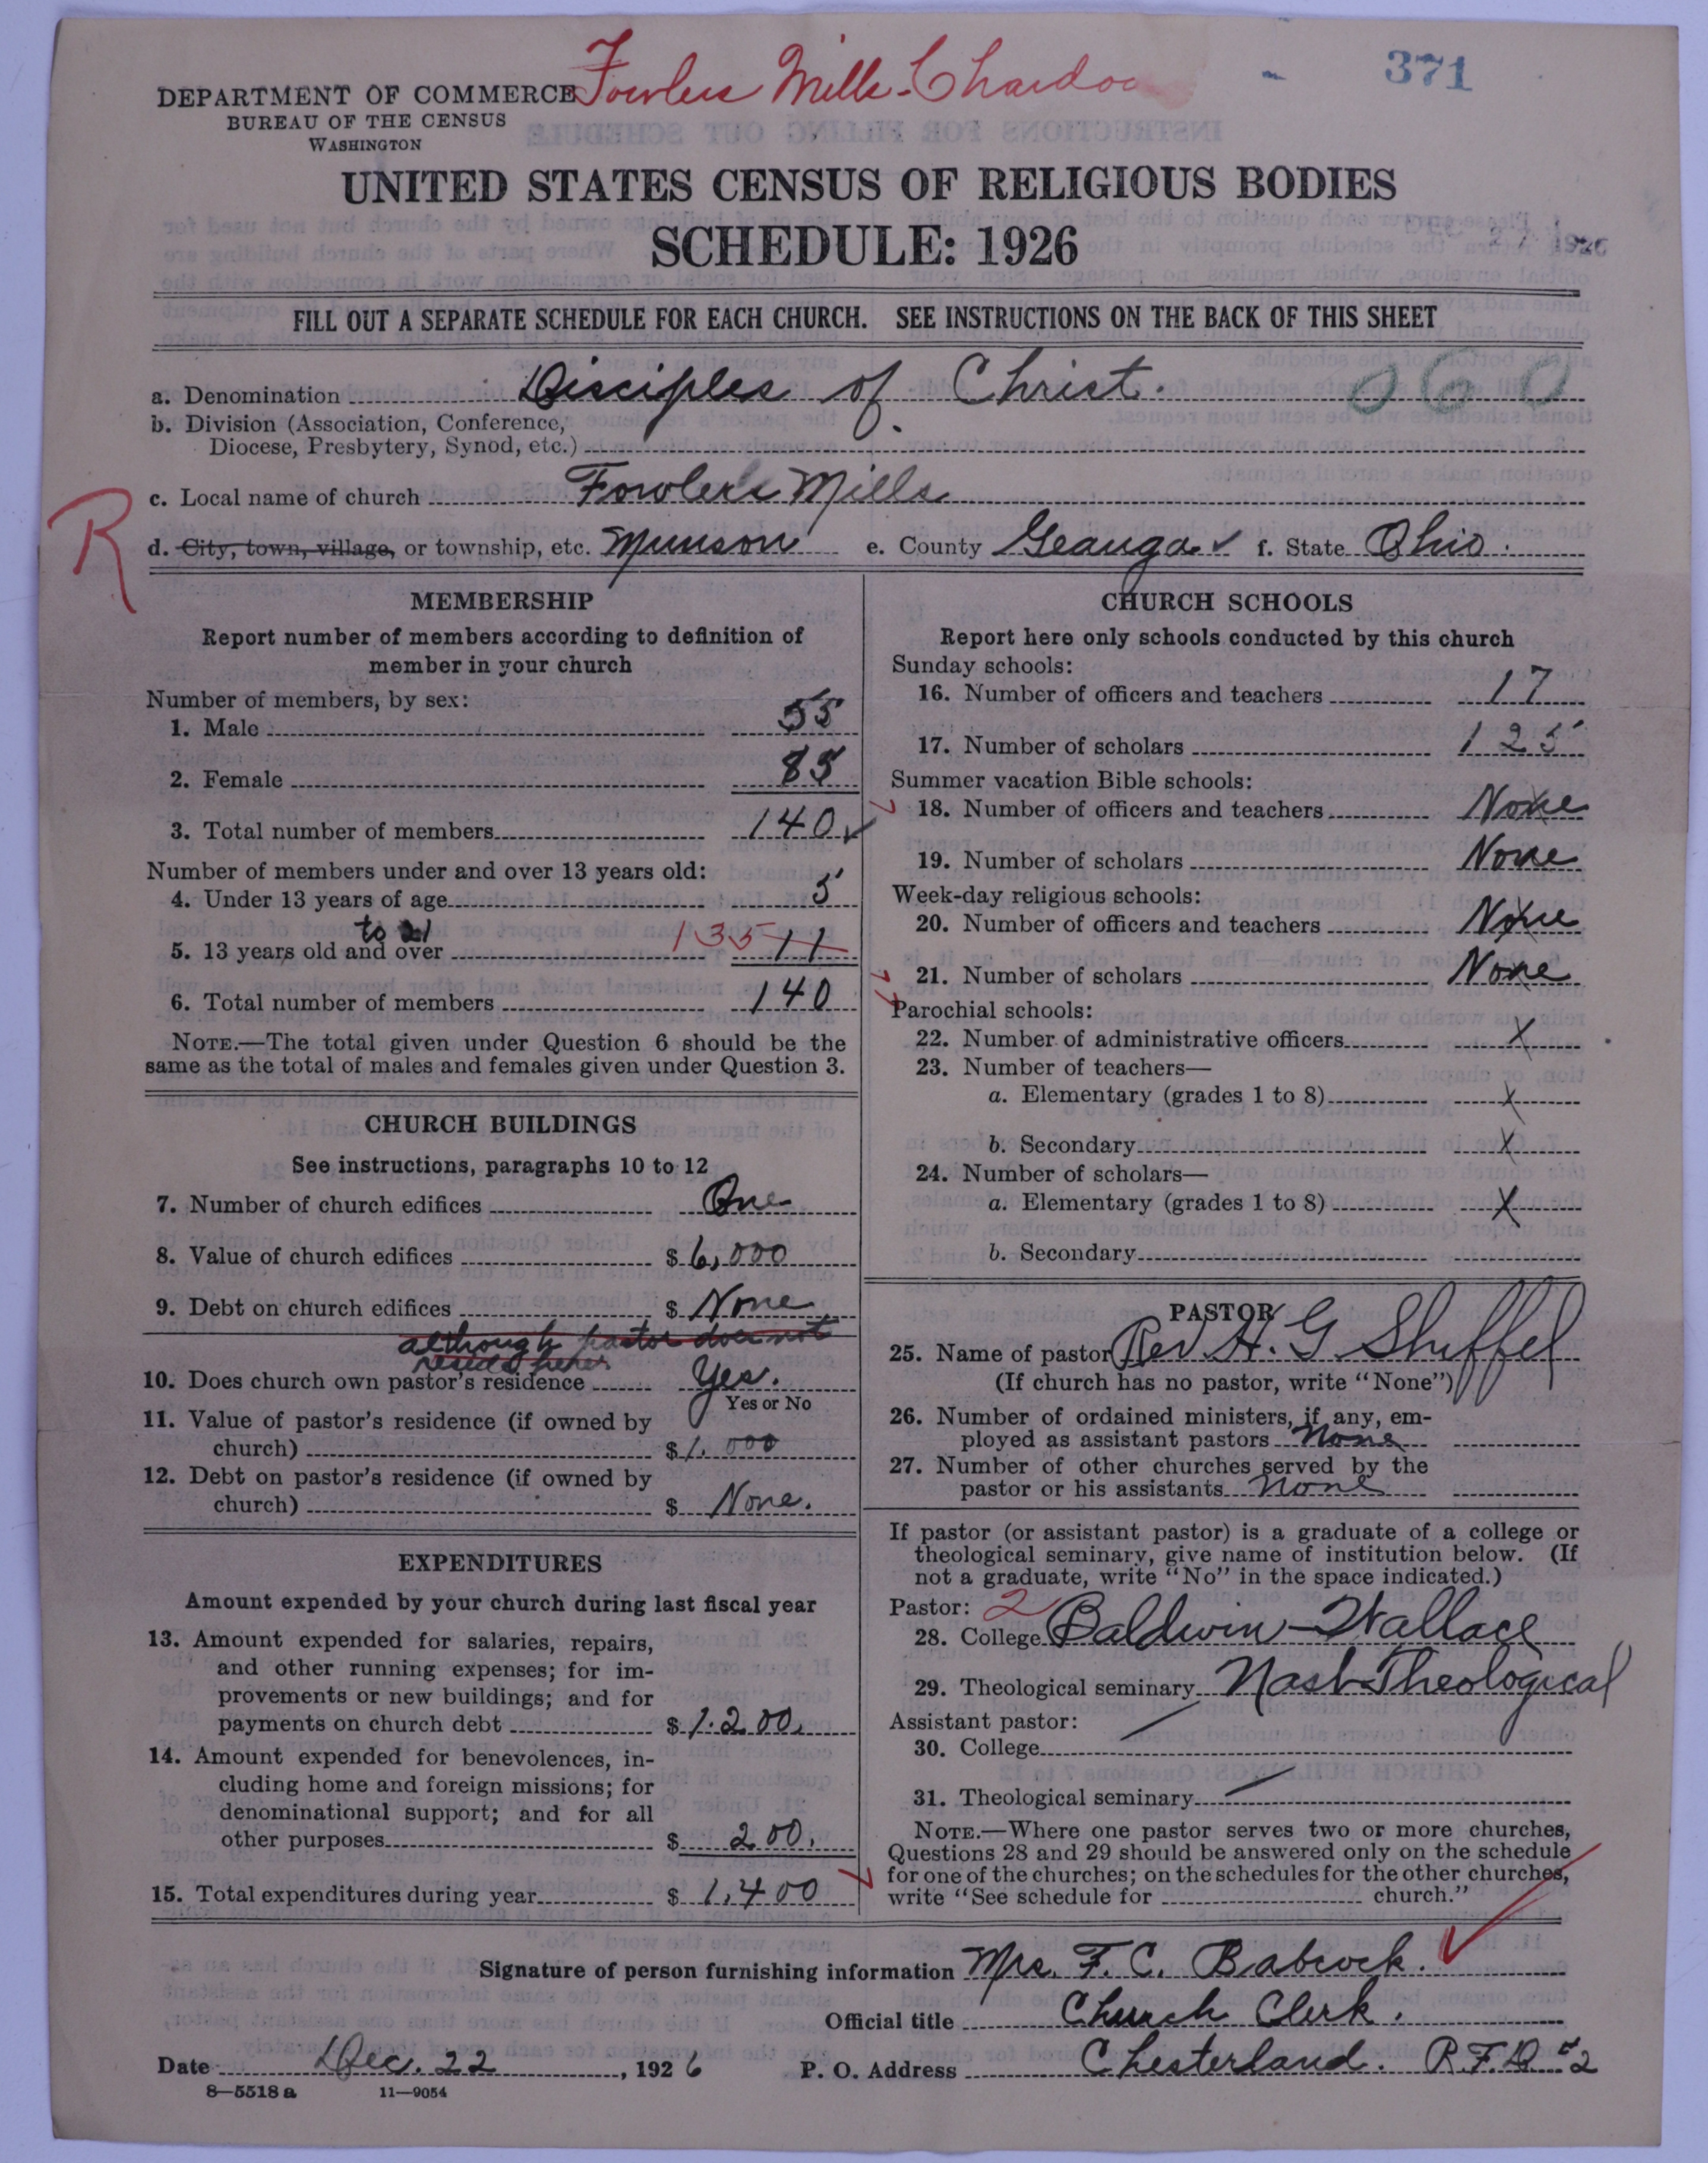 Fowlers Mills-Chardon
371
DEPARTMENT OF COMMERCE
BUREAU OF THE CENSUS
WASHINGTON
UNITED STATES CENSUS OF RELIGIOUS BODIES
SCHEDULE: 1926
DEC 27 1926
FILL OUT A SEPARATE SCHEDULE FOR EACH CHURCH. SEE INSTRUCTIONS ON THE BACK OF THIS SHEET
a. Denomination Disciples of Christ. 060
b. Division (Association, Conference,
Diocese, Presbytery, Synod, etc.)
c. Local name of church Fowler's Mills
R
d. City, town, village, or township, etc. Munson e. County Geauga ✓ f. State Ohio.
MEMBERSHIP
Report number of members according to definition of
member in your church
Number of members, by sex:
1. Male 55
2. Female 85
3. Total number of members 140 ✓
Number of members under and over 13 years old:
4. Under 13 years of age 5
to 21
5. 13 years old and over 135 11
6. Total number of members 140
NOTE.—The total given under Question 6 should be the
same as the total of males and females given under Question 3.
CHURCH BUILDINGS
See instructions, paragraphs 10 to 12
7. Number of church edifices One
8. Value of church edifices $ 6,000
9. Debt on church edifices $ None
although pastor does not
reside here
10. Does church own pastor's residence Yes.
Yes or No
11. Value of pastor's residence (if owned by
church) $ 1,000
12. Debt on pastor's residence (if owned by
church) $ None.
EXPENDITURES
Amount expended by your church during last fiscal year
13. Amount expended for salaries, repairs,
and other running expenses; for im-
provements or new buildings; and for
payments on church debt $ 1.200.
14. Amount expended for benevolences, in-
cluding home and foreign missions; for
denominational support; and for all
other purposes $ 200.
15. Total expenditures during year $ 1,400
CHURCH SCHOOLS
Report here only schools conducted by this church
Sunday schools:
16. Number of officers and teachers 17
17. Number of scholars 125
Summer vacation Bible schools:
18. Number of officers and teachers None
19. Number of scholars None
Week-day religious schools:
20. Number of officers and teachers None
21. Number of scholars None
Parochial schools:
22. Number of administrative officers X
23. Number of teachers—
a. Elementary (grades 1 to 8) X
b. Secondary X
24. Number of scholars—
a. Elementary (grades 1 to 8) X
b. Secondary
PASTOR
25. Name of pastor Rev H. G Shuffel
(If church has no pastor, write "None")
26. Number of ordained ministers, if any, em-
ployed as assistant pastors None
27. Number of other churches served by the
pastor or his assistants None
If pastor (or assistant pastor) is a graduate of a college or
theological seminary, give name of institution below. (If
not a graduate, write "No" in the space indicated.)
Pastor: 2
28. College Baldwin-Wallace
29. Theological seminary Nast Theological
Assistant pastor:
30. College
31. Theological seminary
NOTE.—Where one pastor serves two or more churches,
Questions 28 and 29 should be answered only on the schedule
for one of the churches; on the schedules for the other churches,
write "See schedule for church."
Signature of person furnishing information Mrs. F. C. Babcock.
Official title Church Clerk.
Date Dec. 22, 1926 P. O. Address Chesterland. R.F.D #2
8—5518 a 11—9054